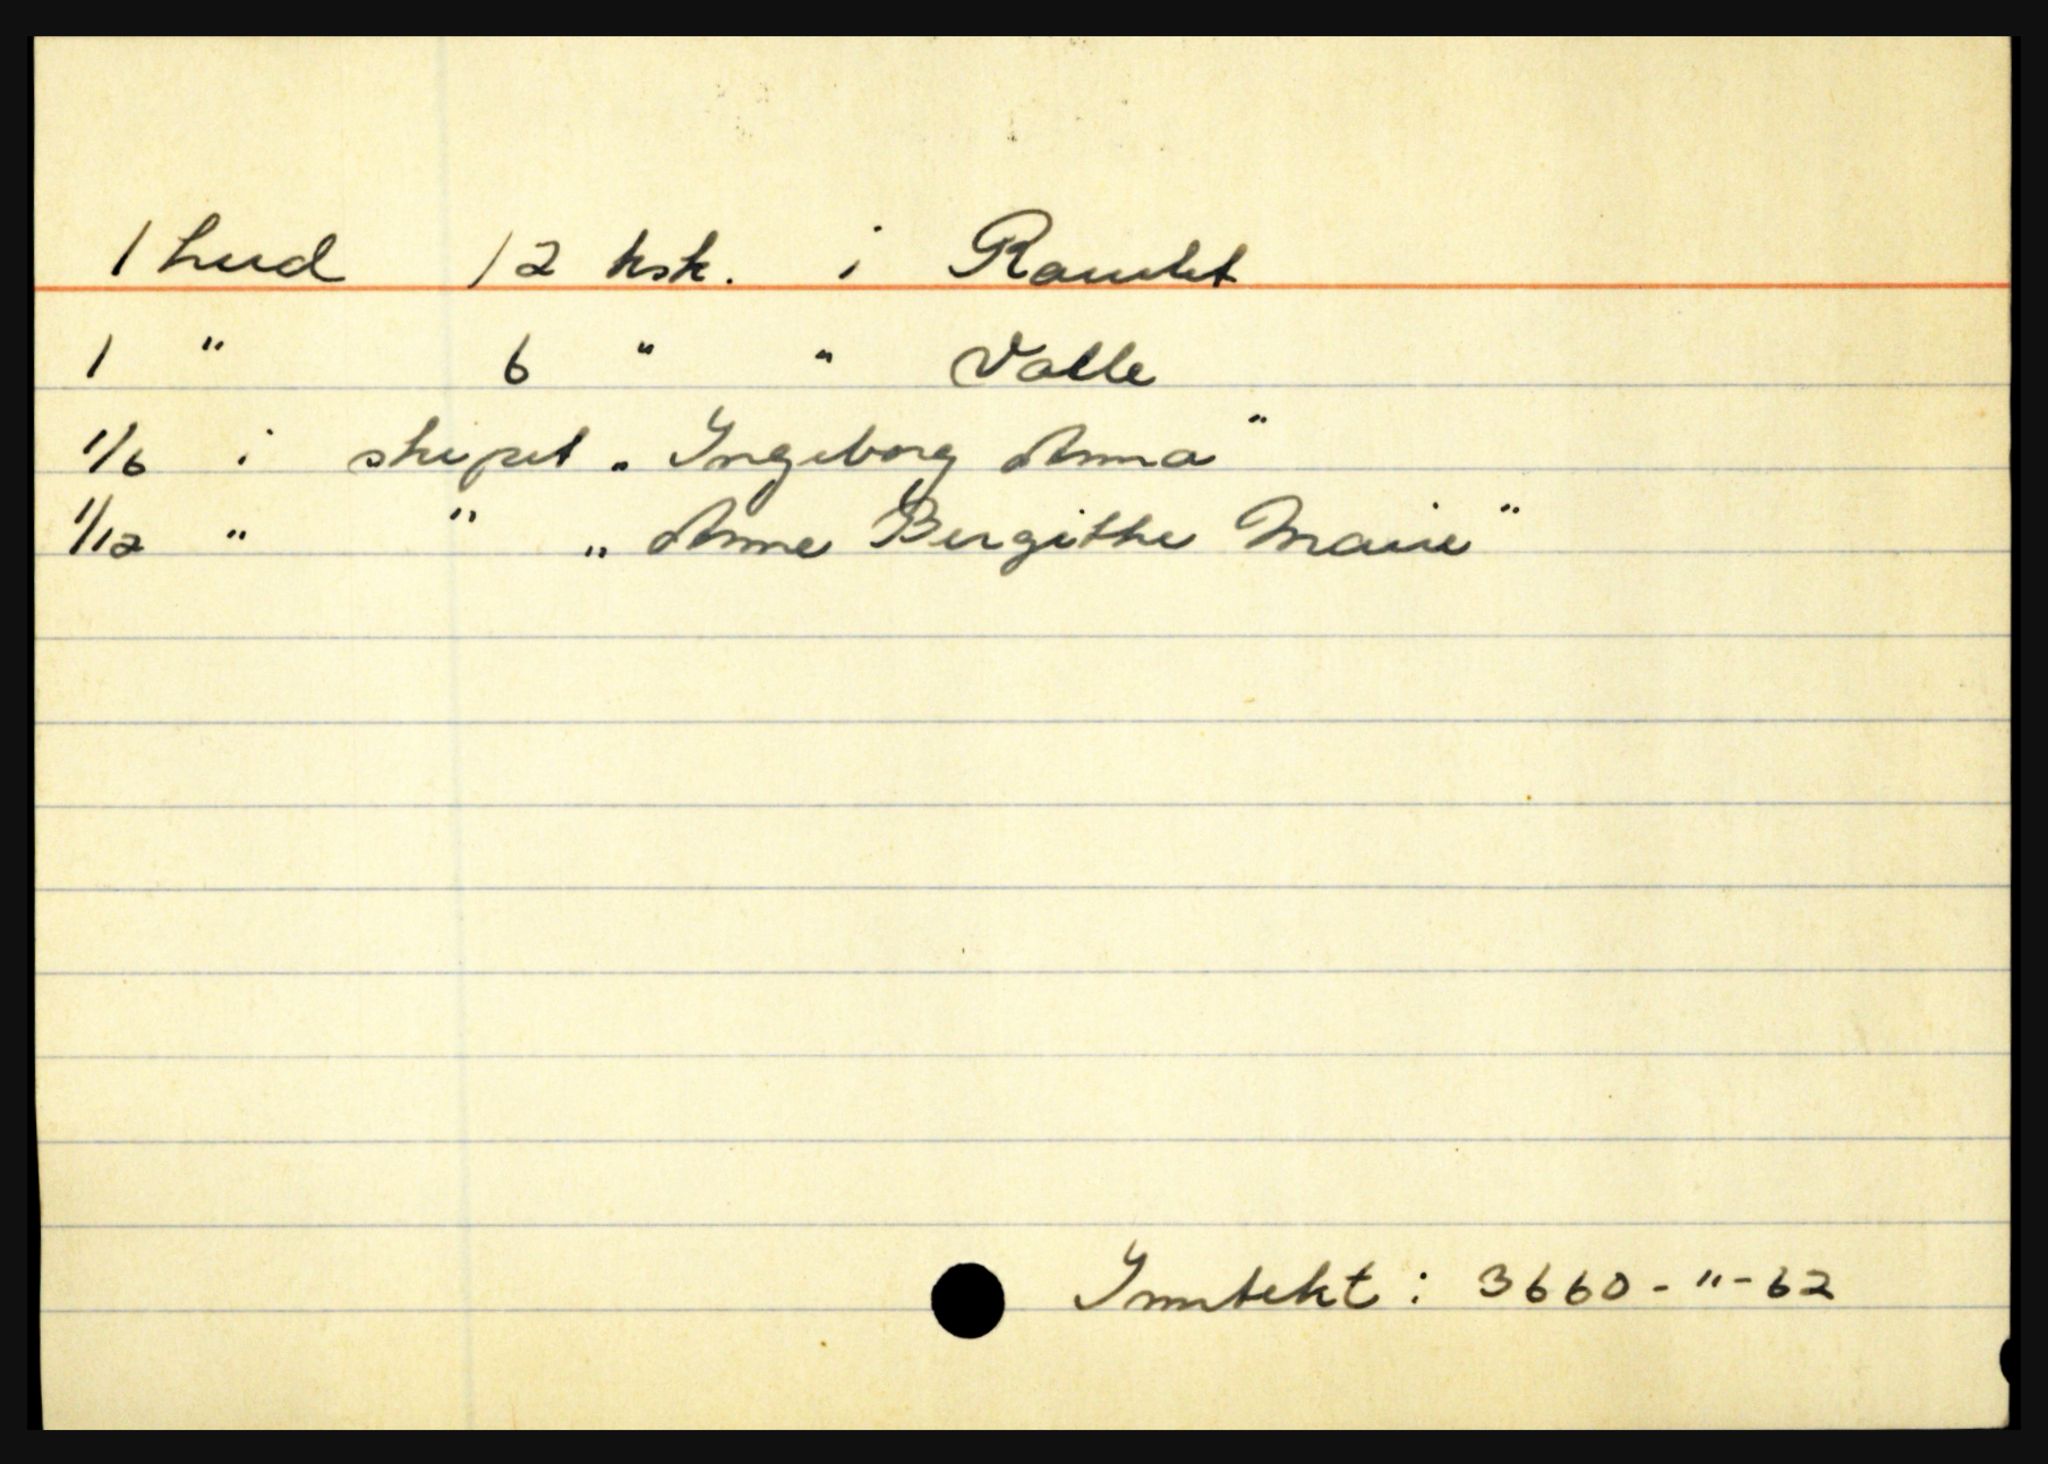 1 hud 12 ksk. i Ramlet
1 " 6 " " Valle
1/6 i skipet „Ingeborg Anna"
1/12 " " „Anne Birgithe Marie"
Inntekt: 3660-"-62